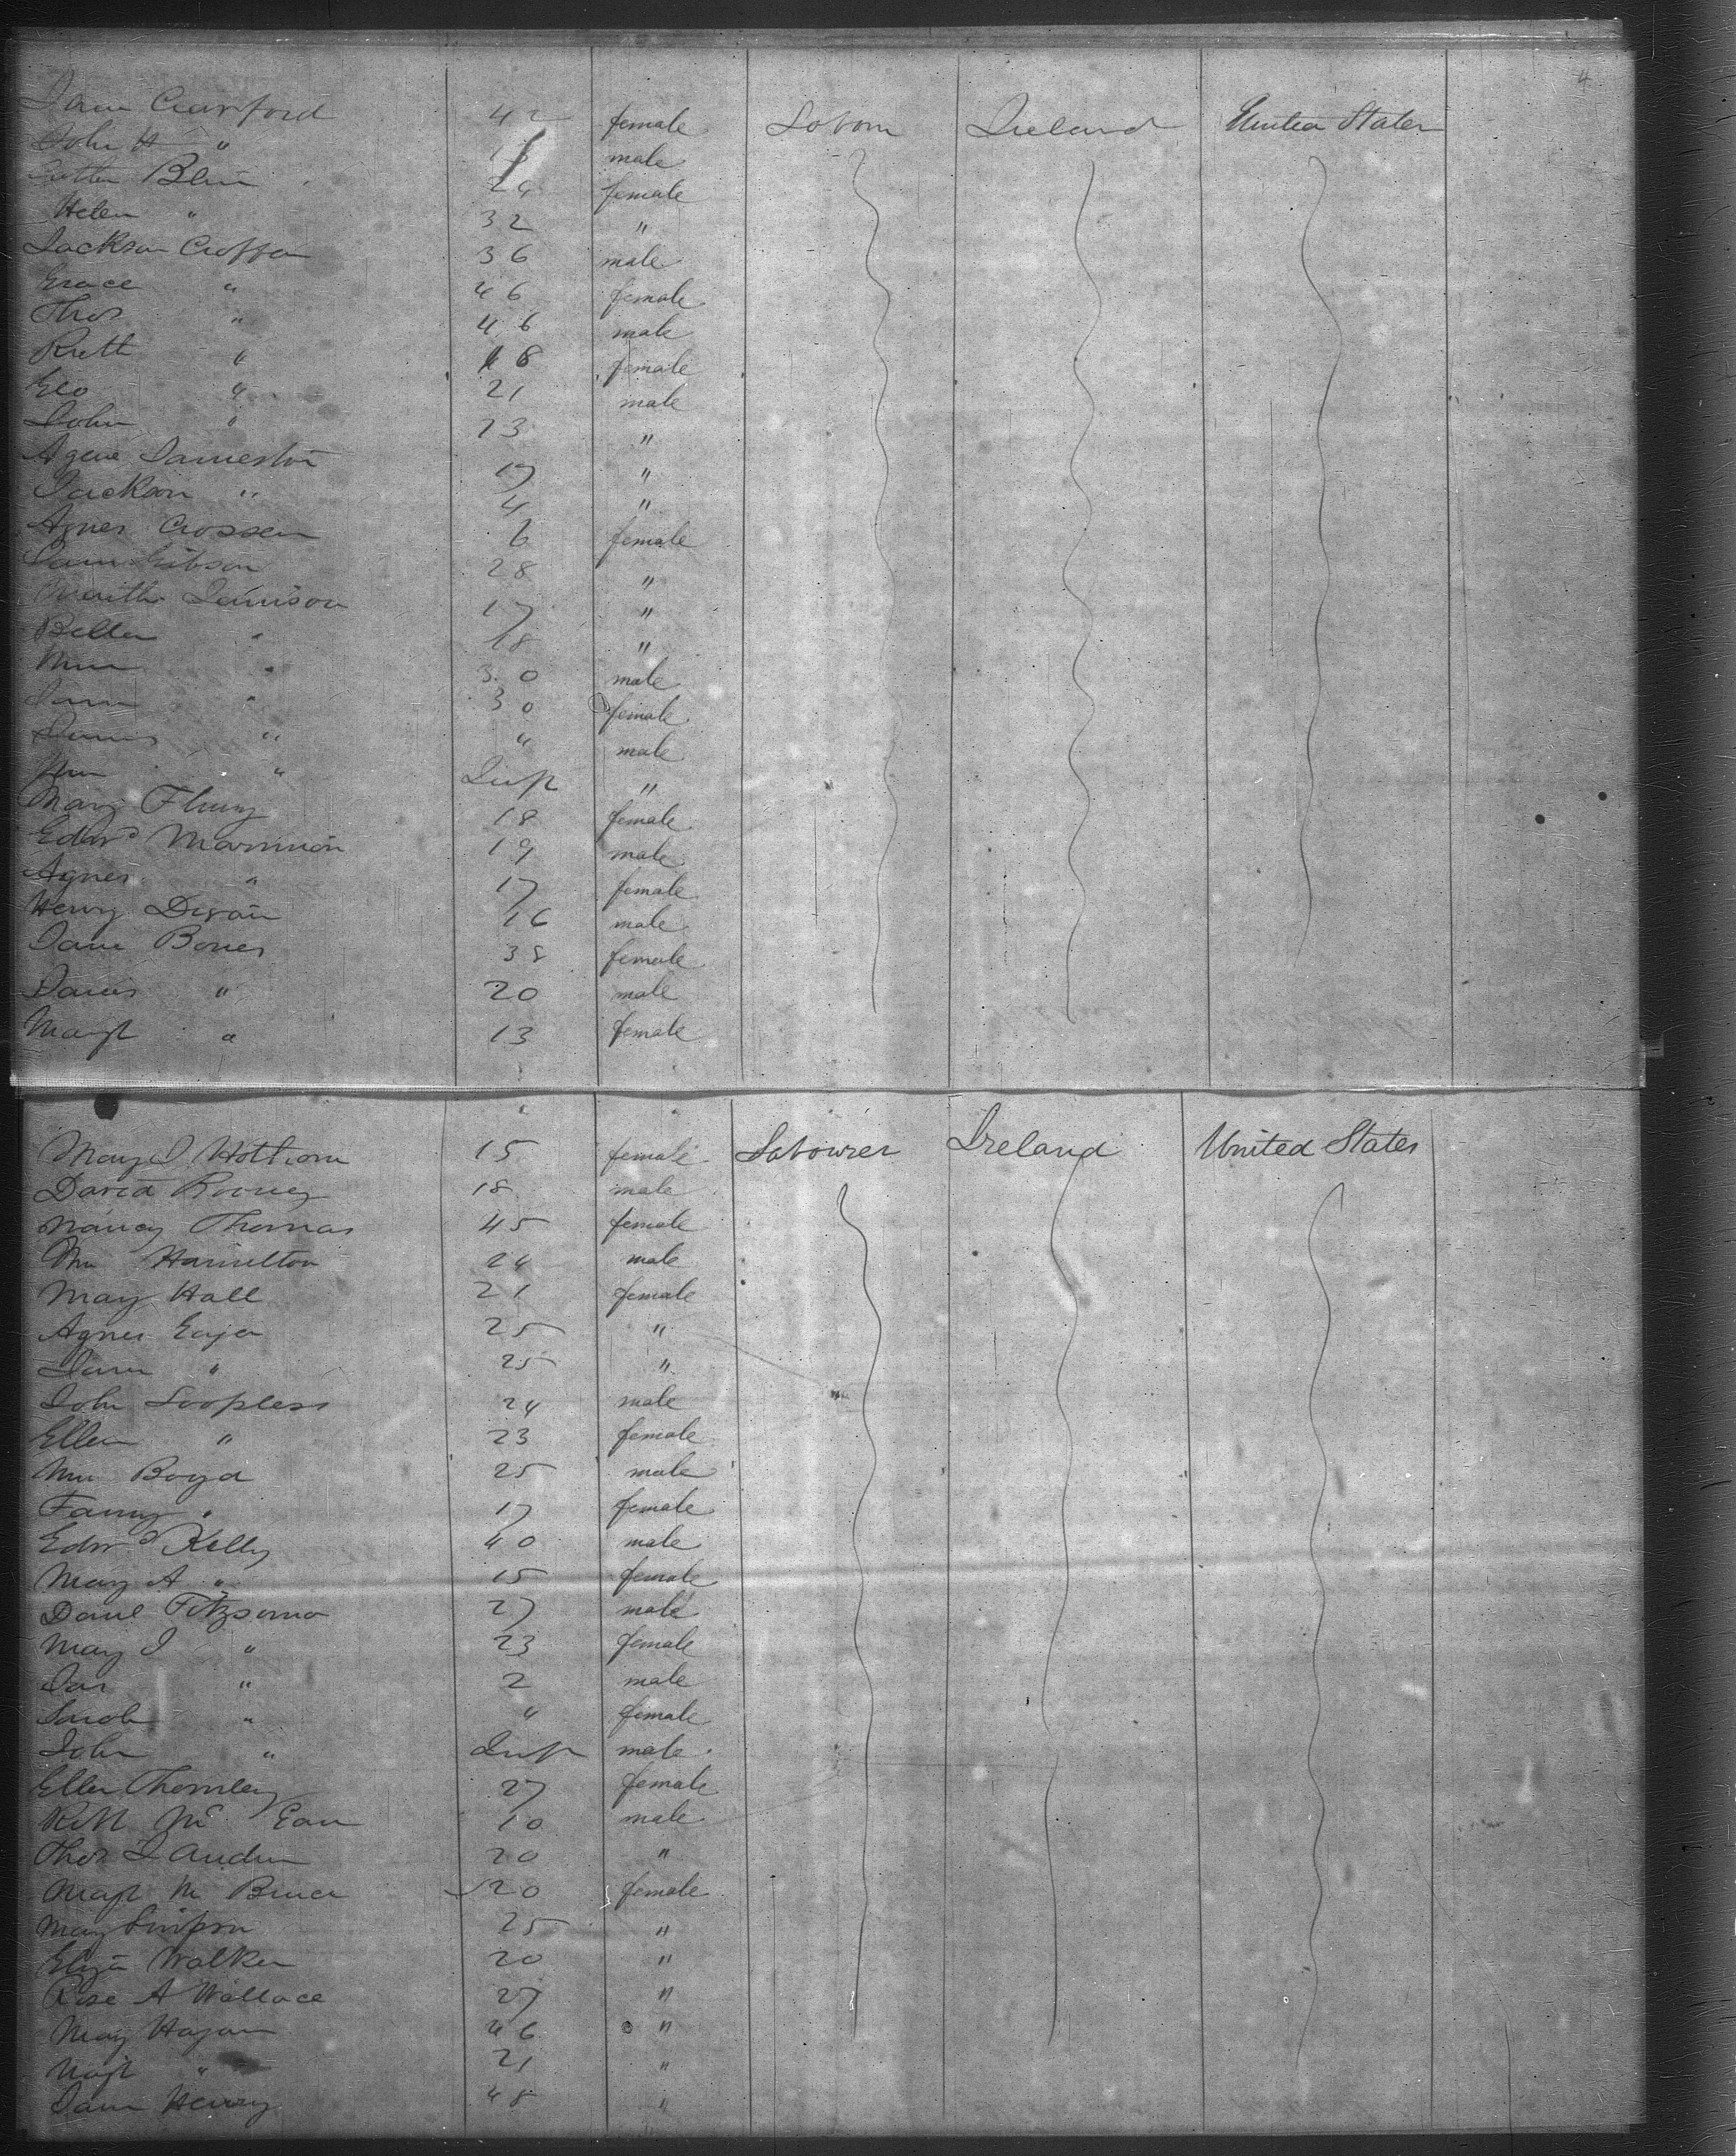 4
Jane Crawford 42 female Labour Ireland United States
John H " male
Blair female
Helen " 32 "
Jackson 36 male
Grace " 46 female
Thos " 46 male
Ruth " 18 female
Geo " 21 male
John " 23 "
Jameston 17 "
Jackson " 4 "
Agnes Crossen 6 female
Jane Gibson 28 "
Jamison 17 "
Bella " 18 "
Wm " 30 male
Jane " 30 female
James " " male
Wm " Inft "
Mary 18 female
Edwd Marmion 19 male
Agnes " 17 female
Henry 16 male
Jane Bones 38 female
James " 20 male
Margt " 13 female
Mary J Hothorn 15 female Labourer Ireland United States
David Rooney 18 male
Nancy Thomas 45 female
Wm Hamilton 24 male
Mary Hall 21 female
Agnes 25 "
Jane " 25 "
John 24 male
Ellen " 23 female
Wm Boyd 25 male
Fanny " 17 female
Edwd Kelly 40 male
Mary A " 15 female
Danl Fitzsomo 27 male
Mary J " 23 female
Jas " 2 male
Sarah " " female
John " Inft male
Ellen Thornley 27 female
Robt Mc 10 male
Thos J 20 "
Magt M Bruce 20 female
Mary Simpson 25 "
Eliza Walker 20 "
Rose A Wallace 27 "
Mary Hagan 46 "
Magt " 21 "
Jane Henry 48 "